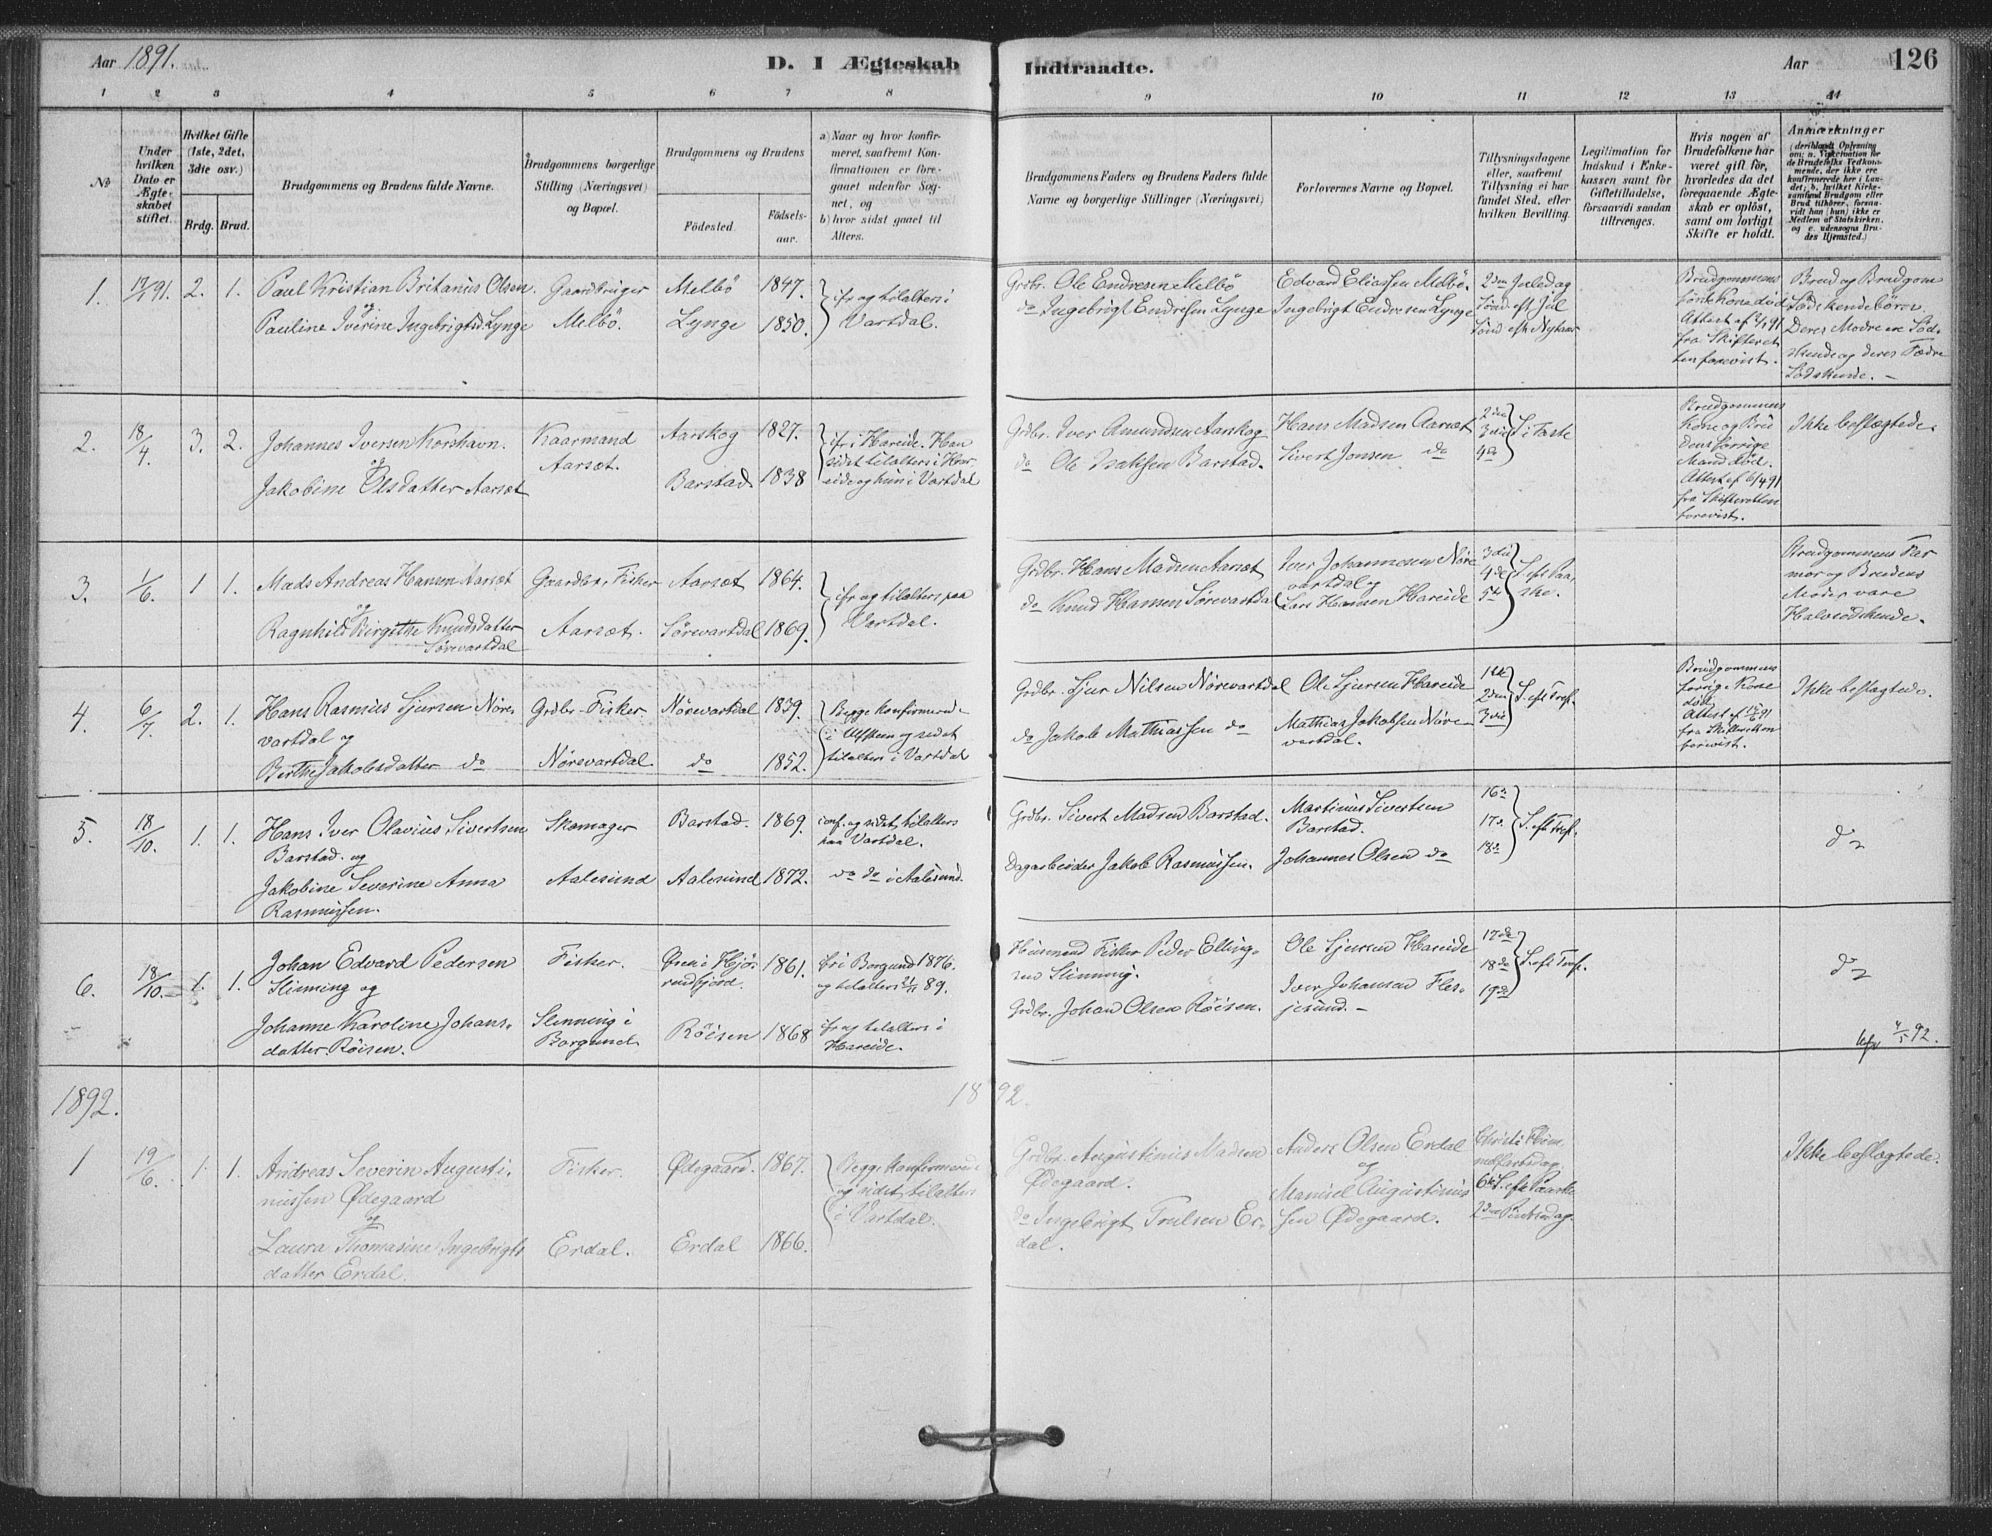 Aar 1891.
D. I Ægteskab
Indtraadte.
Aar
126
1 2 3 4 5 6 7 8 9 10 11 12 13 14
No
Under hvilken Dato er Ægteskabet stiftet.
Hvilket Gifte (1ste, 2det, 3die osv.)
Brdg. Brud.
Brudgommens og Brudens fulde Navne.
Brudgommens borgerlige Stilling (Næringsvei) og Bopæl.
Brudgommens og Brudens
Födested.
Födsels-aar.
a) Naar og hvor konfirmeret, saafremt Konfirmationen er foregaaet udenfor Sognet, og
b) hvor sidst gaaet til Alters.
Brudgommens Faders og Brudens Faders fulde Navne og borgerlige Stillinger (Næringsvei)
Forlovernes Navne og Bopæl.
Tillysningsdagene eller, saafremt Tillysning ei har fundet Sted, efter hvilken Bevilling.
Legitimation for Indskud i Enkekassen samt for Giftetilladelse, forsaavidt saadan tiltrænges.
Hvis nogen af Brudefolkene har været gift før, hvorledes da det foregaaende Ægteskab er oplöst, samt om lovligt Skifte er holdt.
Anmærkninger
1. 91. 2. 1.
Paul Kristian Britanius Olsen
og
Pauline Iverine Ingebrigtsd. Lynge
Gaardbruger
Melbö.
Melbö 1847.
Lynge 1850.
fr og til alters i
Vartdal.
Grdbr. Ole Endresen Melbö
do Ingebrigt Endresen Lynge
Edvard Eliassen Melbö.
Ingebrigt Endresen Lynge
2den Juledag
Sönd eft Jul
Sönd eft Nytaar
Brudgommens
første Kone död
fra Skifteret
ten forevist.
Brud og Brudgom
Södskendebörn
Deres Mödre ere Söd-
skende og deres Fædre
Södskende. –
2. 18/4. 3. 2.
Johannes Iversen Korshavn.
og
Jakobine Olsdatter Aarsæt
Kaarmand
Aarsæt.
Aarskog 1827.
Barstad 1838
fr i Hareide. Han
sidst til alters i Har-
eide og hun i Vartdal
Grdbr. Iver Amundsen Aarskog
do Ole Isaksen Barstad.
Hans Madsen Aarsæt
Sivert Jonsen do
2den
3die
4de
S. i Faste
Brudgommens
Kone og Bru
dens forrige
Mand död.
Attest af 6/4 91
fra Skifteretten
forevist.
Ikke beslægtede.
3. 1/6. 1 1.
Mads Andreas Hansen Aarsæt
og
Ragnhild Birgithe Knudsdatter
Sörevartdal
Gaardbr. Fisker
Aarsæt.
Aarsæt 1864.
Sörevartdal 1869.
fr og til alters paa
Vartdal.
Grdbr. Hans Madsen Aarsæt
do Knud Hansen Sörevartdal
Iver Johannesen Nöre
vartdal og
Lars Hansen Hareide
3die
4de
5te
S. eft Paa-
ske.
Brudgommens Far
mor og Brudens
Moder vare
Halvsödskende.
4. 6/7. 2. 1.
Hans Rasmus Sjursen Nöre-
vartdal og
Birthe Jakobsdatter do
Grdbr. Fisker
Nörevartdal.
Nörevartdal 1839.
do 1852.
Begge konfirmered
i Ulfsten og sidst
til alters i Vartdal
Grdbr. Sjur Nilsen Nörevartdal
do Jakob Mathiassen do
Ole Sjursen Hareide
Mathias Jakobsen Nöre-
vartdal.
1ste
2den
3die
S. eft Tref.
Brudgommens
forrige Kone
död
fra Skifteretten
forevist.
Ikke beslægtede.
5. 18/10. 1. 1.
Hans Iver Olavius Sivertsen
Barstad. og
Jakobine Severine Anna
Rasmussen.
Skomager
Aalesund
Barstad. 1869.
Aalesund 1872.
conf. og sidst til alters
paa Vartdal.
do i Aalesund.
Grdbr. Sivert Madsen Barstad.
Dagarbeider Jakob Rasmussen.
Martinus Sivertsen
Barstad.
Johannes Olsen do
16de
17de
18de
S. eft Tref.
do
6. 18/10. 1. 1.
Johan Edvard Pedersen
Slinning og
Johanne Karoline Johans-
datter Röisen.
Fisker.
Slinning i
Borgund.
i Hjö-
rendfjord. 1861.
Röisen 1868
fr i Borgund 1876.
og til alters 89.
fr og til alters i
Hareide.
Huusmand Fisker Peder Elling-
sen Slinning.
Grdbr. Johan Olsen Röisen.
Ole Sjursen Hareide
Iver Johansen Fles-
jesund. –
17de
18de
19de
S. eft Tref.
do
92.
1892.
1892.
1 19/6. 1. 1.
Andreas Severin Augusti-
nussen Ødegaard
og
Laura Thomasine Ingebrigts
datter Erdal.
Fisker.
Erdal.
Ødegaard. 1867.
Erdal 1866.
Begge konfirmerede
og sidst til alters
i Vartdal.
Grdbr. Augustinus Madsen
Ødegaard.
do Ingebrigt Trulsen Er-
dal.
Anders Olsen Erdal
og
Manuel Augustinus
sen Ødegaard.
Christi Him
melfartsdag
6te S. eft Paaske
2den Pintsedag.
Ikke beslægtede.